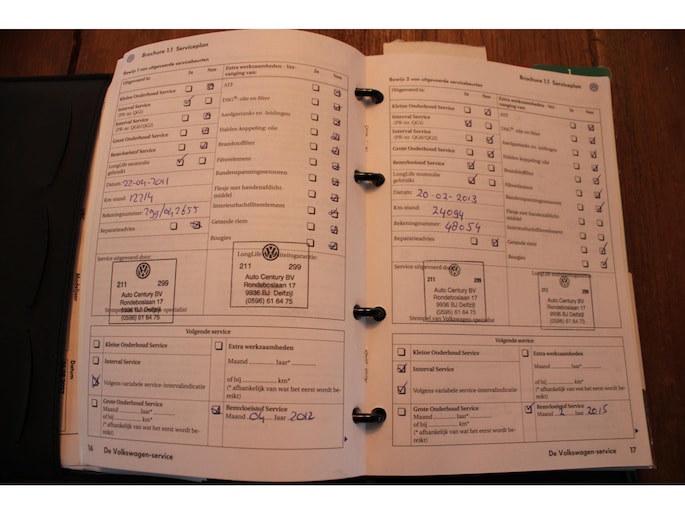 Brochure 1.1 Serviceplan
Bewijs 1 van uitgevoerde servicebeurten
Uitgevoerd is: Ja Nee
Kleine Onderhoud Service
Interval Service
(PR-nr. QG1)
Interval Service
(PR-nr. QG0/QG2)
Grote Onderhoud Service
Remvloeistof Service
LongLife motorolie
gebruikt
Datum: 22-04-2011
Km-stand: 12714
Rekeningnummer:
Reparatieadvies
Extra werkzaamheden - Ver-
vanging van: Ja Nee
ATF
DSG®-olie en filter
Aardgastanks en -leidingen
Haldex-koppeling: olie
Brandstoffilter
Filterelement
Bandenspanningssensoren
Flesje met bandenafdicht-
middel
Interieurluchtfilterelement
Getande riem
Bougies
Service uitgevoerd door:
LongLife
211 299
Auto Century BV
Rondeboslaan 17
9936 BJ Delfzijl
(0596) 61 64 75
211 299
Auto Century BV
Rondeboslaan 17
9936 BJ Delfzijl
(0596) 61 64 75
Volgende service
Kleine Onderhoud Service
Interval Service
Volgens variabele service-intervalindicatie
Extra werkzaamheden
Maand ........... Jaar*
of bij ........... km*
(* afhankelijk van wat het eerst wordt be-
reikt)
Grote Onderhoud Service
Maand ........... Jaar*
of bij ........... km*
(* afhankelijk van wat het eerst wordt be-
reikt)
Remvloeistof Service
Maand 04 Jaar 2012
16 De Volkswagen-service
Brochure 1.1 Serviceplan
Bewijs 2 van uitgevoerde servicebeurten
Uitgevoerd is: Ja Nee
Kleine Onderhoud Service
Interval Service
(PR-nr. QG1)
Interval Service
(PR-nr. QG0/QG2)
Grote Onderhoud Service
Remvloeistof Service
LongLife motorolie
gebruikt
Datum: 20-02-2013
Km-stand: 24094
Rekeningnummer: 48054
Reparatieadvies
Extra werkzaamheden - Ver-
vanging van: Ja Nee
ATF
DSG®-olie en filter
Aardgastanks en -leidingen
Haldex-koppeling: olie
Brandstoffilter
Filterelement
Bandenspanningssensoren
Flesje met bandenafdicht-
middel
Interieurluchtfilterelement
Getande riem
Bougies
Service uitgevoerd door:
211 299
Auto Century BV
Rondeboslaan 17
9936 BJ Delfzijl
(0596) 61 64 75
Stempel van Volkswagen-specialist
211 299
Auto Century BV
Rondeboslaan 17
9936 BJ Delfzijl
(0596) 61 64 75
Volgende service
Kleine Onderhoud Service
Interval Service
Volgens variabele service-intervalindicatie
Extra werkzaamheden
Maand ........... Jaar*
of bij ........... km*
(* afhankelijk van wat het eerst wordt be-
reikt)
Grote Onderhoud Service
Maand ........... Jaar*
of bij ........... km*
(* afhankelijk van wat het eerst wordt be-
reikt)
Remvloeistof Service
Maand 2 Jaar 2015
De Volkswagen-service 17